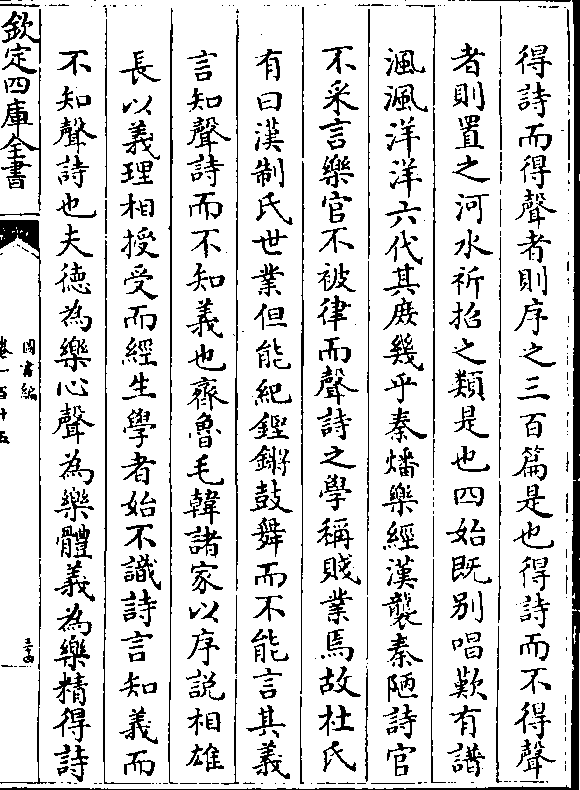 得詩而得聲者則序之三百篇是也得詩而不得聲
者則置之河水祈招之類是也四始既别唱歎有譜
渢渢洋洋六代其庶幾乎秦燔樂經漢襲秦陋詩官
不采言樂官不被律而聲詩之學稱賤業焉故杜氏
有曰漢制氏世業但能紀鏗鏘鼓舞而不能言其義
言知聲詩而不知義也齊魯毛韓諸家以序說相雄
長以義理相授受而經生學者始不識詩言知義而
不知聲詩也夫德為樂心聲為樂體義為樂精得詩
欽定四庫全書
圖書編
卷一百十五